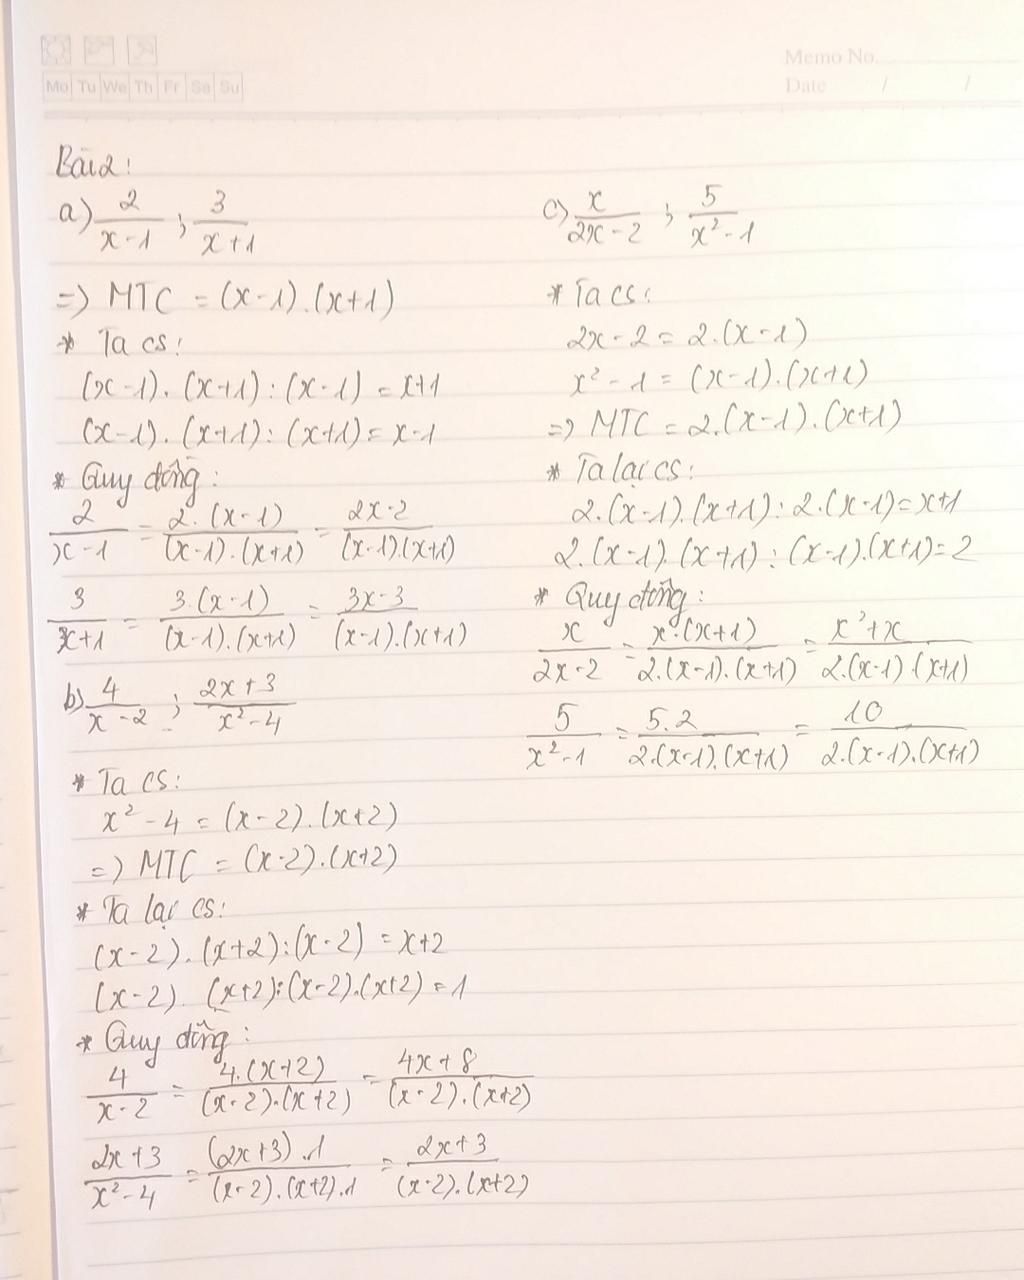 Memo No.
Mo Tu We Th Fr Sa Su
Date / /
Bài 2:
a) 2/(x-1) ; 3/(x+1)
=> MTC = (x-1).(x+1)
* Ta cs:
(x-1).(x+1):(x-1) = x+1
(x-1).(x+1):(x+1) = x-1
* Quy đồng:
2/(x-1) = 2.(x-1)/(x-1).(x+1) = 2x-2/(x-1).(x+1)
3/(x+1) = 3.(x-1)/(x-1).(x+1) = 3x-3/(x-1).(x+1)
b) 4/(x-2) ; (2x+3)/(x²-4)
* Ta cs:
x²-4 = (x-2).(x+2)
=> MTC = (x-2).(x+2)
* Ta lại cs:
(x-2).(x+2):(x-2) = x+2
(x-2).(x+2):(x-2).(x+2) = 1
* Quy đồng:
4/(x-2) = 4.(x+2)/(x-2).(x+2) = 4x+8/(x-2).(x+2)
2x+3/(x²-4) = (2x+3).1/(x-2).(x+2).1 = 2x+3/(x-2).(x+2)
c) x/(2x-2) ; 5/(x²-1)
* Ta cs:
2x-2 = 2.(x-1)
x²-1 = (x-1).(x+1)
=> MTC = 2.(x-1).(x+1)
* Ta lại cs:
2.(x-1).(x+1):2.(x-1) = x+1
2.(x-1).(x+1):(x-1).(x+1) = 2
* Quy đồng:
x/(2x-2) = x.(x+1)/2.(x-1).(x+1) = x²+x/2.(x-1).(x+1)
5/(x²-1) = 5.2/2.(x-1).(x+1) = 10/2.(x-1).(x+1)